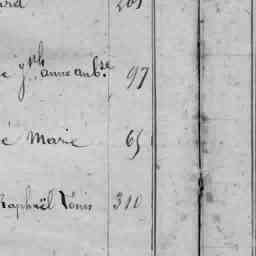 ard 205
e jph anne aubse 97
é Marie 65
Raphaël Louis 310